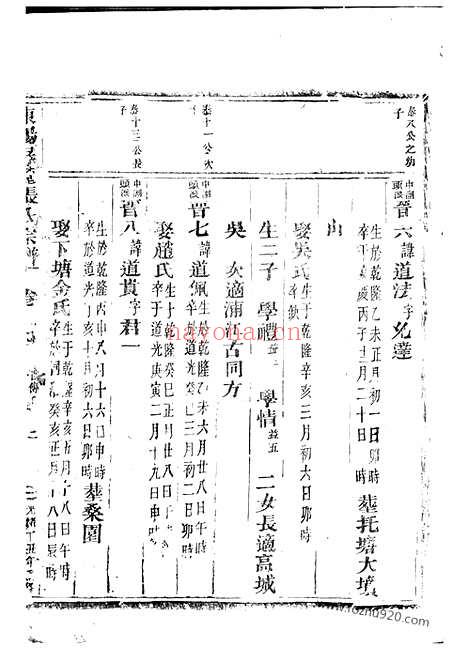 泰八公之幼
子
中湖
頭派
晉六諱道法字允達
生於乾隆乙未正月初一日卯時
卒于嘉慶丙子十二月二十日
葬托塘大墳
山
娶吳氏生于乾隆辛亥三月初六日卯時
卒缺
生二子 學禮 學情益五 二女長適高城
吳 次適浦口古同方
泰十一公次
子
中湖
頭派
晉七諱道佩生於乾隆乙未六月廿八日午時
娶趙氏生于乾隆癸巳正月廿八日子時
卒于道光庚寅二月十九日申時
泰十三公長
子
中湖
頭派
晉八諱道貴字君一
生於乾隆丙申八月十六日申時
卒於道光丁亥十月初六日卯時
葬桑園
娶下塘金氏生于乾隆辛亥五月十八日午時
張氏宗譜
卷
nayona.cn
www.fozhu920.com